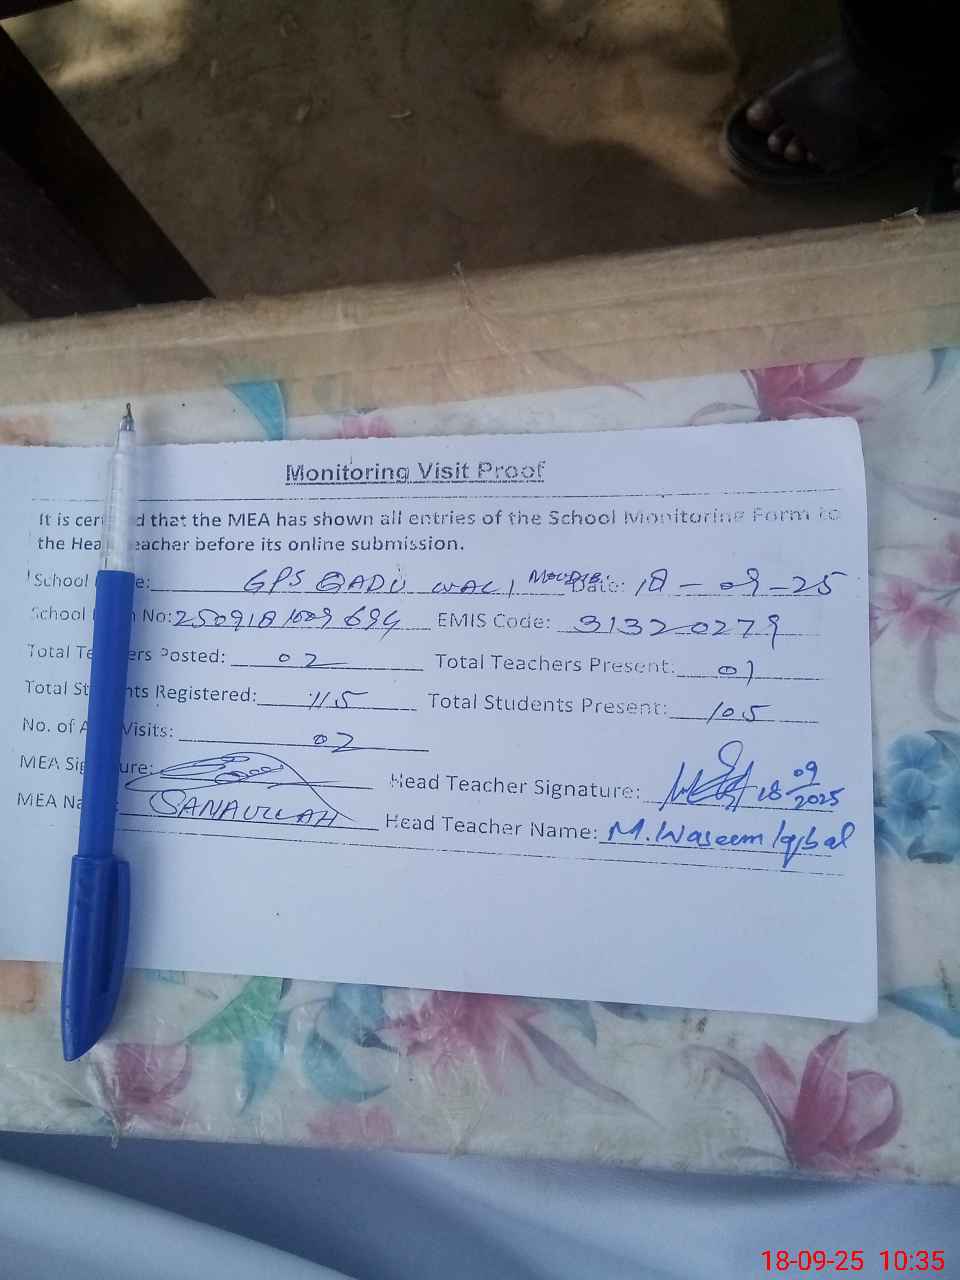 Monitoring Visit Proof
It is cer d that the MEA has shown all entries of the School Monitoring Form to
the Hea eacher before its online submission.
School e: GPS WALI Date: 18-09-25
School No: EMIS Code: 31320279
Total Te ers Posted: 02 Total Teachers Present: 01
Total St nts Registered: 115 Total Students Present: 105
No. of A Visits: 02
MEA Sig ure: Head Teacher Signature: 18 09 2025
MEA Na : SANAULLAH Head Teacher Name: M. Waseem Iqbal
18-09-25 10:35